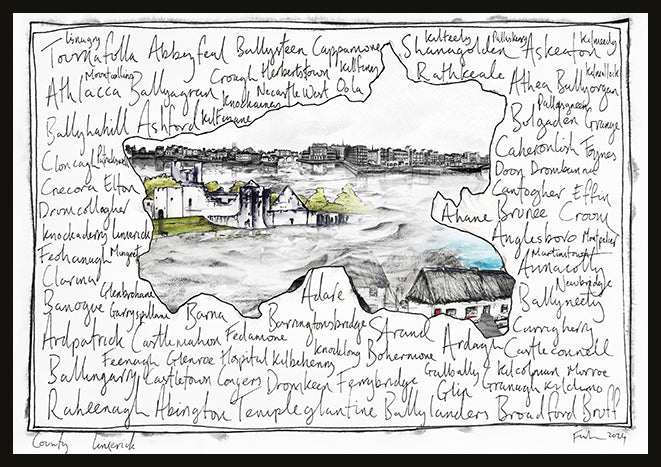 Lisnagry Kilteely Pallaskenry Kilmeedy
Tournafulla Abbeyfeal Ballysteen Cappamore Shanagolden Askeaton
Mountcollins Croagh Herbertstown Kilfinny Rathkeale Kilmallock
Athlacca Ballyagran Knockainey Newcastle West Oola Athea Ballyorgan
Ballyhahill Ashford Kilfinane Pallasgreen
Bolgaden Grange
Cloncagh Caherconlish Foynes
Crecora Elton Doon Dromkeen
Dromcollogher Cantogher Effin
Knockaderry Limerick Ahane Bruree Croom
Feohanagh Mungret Anglesboro Montpelier
Clarina Martinstown
Annacotty
Glenbrohane Newbridge
Banogue Garryspillane Barna Adare Ballyneety
Ardpatrick Castlemahon Fedamore Barringtonsbridge Strand Ardagh Curragherry
Feenagh Glenroe Hospital Kilbehenny Knocklong Bohermore Castleconnell
Ballingarry Castletown Conyers Dromkeen Ferrybridge Galbally Kilcolman Murroe
Glin Granagh Kildimo
Raheenagh Abington Templeglantine Ballylanders Broadford Bruff
County Limerick 2024